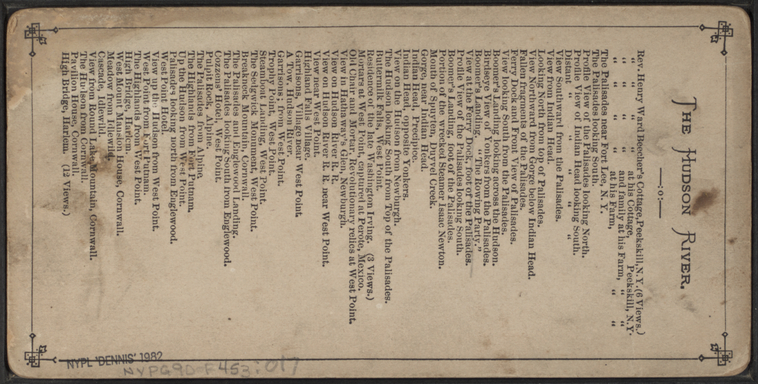 THE HUDSON RIVER.
—:o:—
Rev. Henry Ward Beecher's Cottage, Peekskill, N.Y. (6 Views.)
" " " " at his Cottage, Peekskill, N.Y.
" " " " and family at his Farm, " "
" " " " at his Farm, " "
The Palisades near Fort Lee, N. Y.
The Palisades looking South.
Profile View of the Palisades looking North.
Profile View of Indian Head looking South.
Distant " " " " "
View Southward from the Palisades.
View from Indian Head.
Looking North from top of Palisades.
View Northward from the Gorge below Indian Head.
Fallen fragments of the Palisades.
Ferry Dock and Front View of Palisades.
View looking South from the Palisades.
Boomer's Landing looking across the Hudson.
Birdseye View of Yonkers from the Palisades.
Boomer's Landing. "A Rowing Party."
View at the Ferry Dock, foot of the Palisades.
Profile View of the Palisades looking South.
Boomer's Landing, foot of the Palisades.
Portion of the wrecked Steamer Isaac Newton.
Mouth of Spuyten, Duyvel Creek.
Gorge near Indian Head.
Indian Head, Precipice.
Indian Head, opposite Yonkers.
View on the Hudson from Newburgh.
The Hudson looking South from Top of the Palisades.
Buttermilk Falls, West Point.
Residence of the late Washington Irving. (3 Views.)
Mortars at West Point, captured at Perote, Mexico.
Old Chain and Mortars, Revolutionary relics at West Point.
View in Hathaway's Glen, Newburgh.
View on Hudson River R. R.
View on Hudson River R. R. near West Point.
View near West Point.
Highland Falls Village.
Garrisons, Village near West Point
Tow, Hudson River
Garrisons, from West Point.
Trophy Point, West Point.
Steamboat Landing, West Point.
The Sedgwick Monument, West Point.
Breakneck Mountain, Cornwall.
The Palisades and Englewood Landing.
The Palisades looking South from Englewood.
Cozzens' Hotel, West Point
Pulpit Rock, Alpine.
The Palisades from Alpine.
The Highlands from Fort Putnam.
Up the Hudson from West Point.
Palisades looking north from Englewood.
West Point Hotel.
View up the Hudson from West Point.
West Point from Fort Putnam.
The Highlands from West Point.
High Bridge, Harlem.
West Mount Mansion House, Cornwall.
Meadow from Idlewild.
Cascade, Idlewild.
View from Round Lake Mountain, Cornwall.
The Hudson from Cornwall.
Pavilion House, Cornwall.
High Bridge, Harlem. (12 Views.)
NYPL 'DENNIS' 1982
NYPG90-F453:017